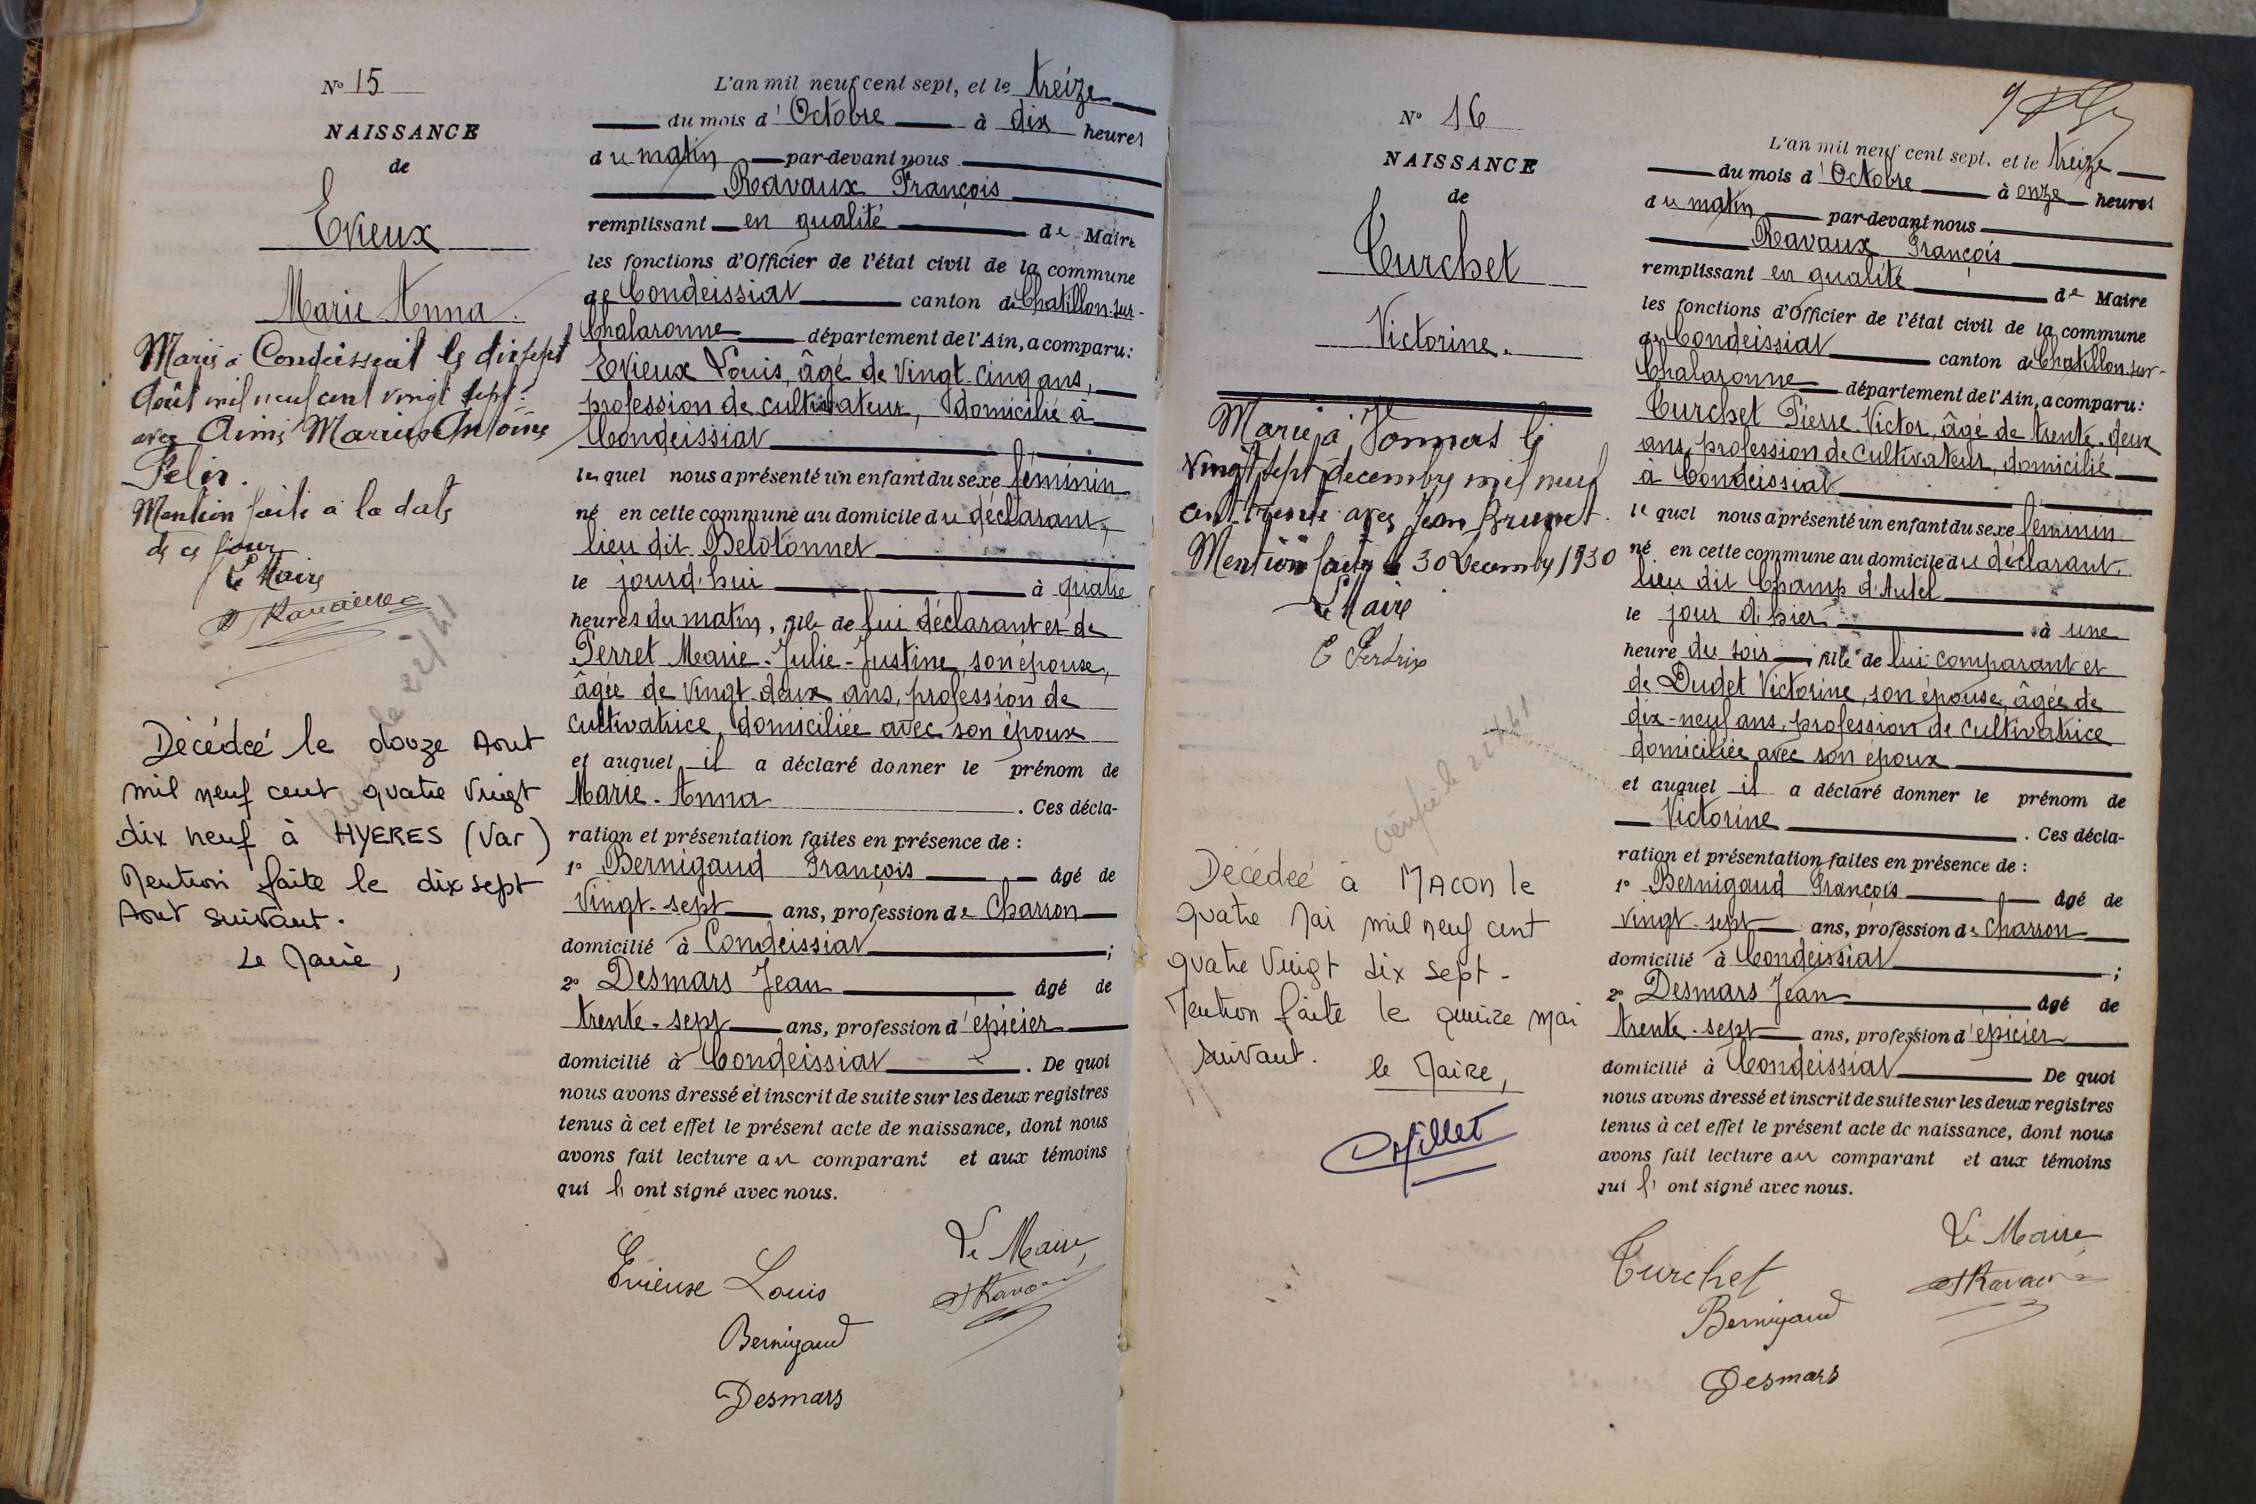 N° 15
NAISSANCE
de
Evieux
Marie Anna.
Mariée à Condeissiat le dix sept
Août mil neuf cent vingt sept
avec Aimé Marius Antoine
Felix.
Mention faite à la date
de ce jour
Le Maire
Décédée le douze Aout
mil neuf cent quatre vingt
dix neuf à HYERES (Var)
Mention faite le dix sept
Aout suivant.
Le Maire,
L'an mil neuf cent sept, et le treize
du mois d'Octobre à dix heures
du matin par-devant nous
Ravaux François
remplissant en qualité de Maire
les fonctions d'Officier de l'état civil de la commune
de Condeissiat canton de Chatillon-sur-
Chalaronne département de l'Ain, a comparu:
Evieux Louis, âgé de vingt-cinq ans,
profession de cultivateur, domicilié à
Condeissiat
lequel nous a présenté un enfant du sexe féminin
né en cette commune au domicile du déclarant,
lieu dit Belotonnet
le jourd'hui à quatre
heures du matin, fille de lui déclarant et de
Perret Marie-Julie-Justine, son épouse,
âgée de vingt-deux ans, profession de
cultivatrice, domiciliée avec son époux
et auquel il a déclaré donner le prénom de
Marie-Anna. Ces décla-
ration et présentation faites en présence de :
1° Bernigaud François âgé de
vingt-sept ans, profession de charron
domicilié à Condeissiat ;
2° Desmars Jean âgé de
trente-sept ans, profession d'épicier
domicilié à Condeissiat. De quoi
nous avons dressé et inscrit de suite sur les deux registres
tenus à cet effet le présent acte de naissance, dont nous
avons fait lecture au comparant et aux témoins
qui l' ont signé avec nous.
Evieux Louis
Le Maire,
F Ravaux
Bernigaud
Desmars
N° 16
NAISSANCE
de
Curchet
Victorine.
Mariée à Vonnas le
vingt sept décembre mil neuf
cent trente avec Jean Brunet.
Mention faite le 30 Décembre 1930
Le Maire
C Perdrix
vérifié le
Décédée à MACON le
quatre Mai mil neuf cent
quatre vingt dix sept-
Mention faite le quinze mai
suivant.
le Maire,
L'an mil neuf cent sept, et le treize
du mois d'Octobre à onze heures
du matin par-devant nous
Ravaux François
remplissant en qualité de Maire
les fonctions d'Officier de l'état civil de la commune
de Condeissiat canton de Chatillon-sur-
Chalaronne département de l'Ain, a comparu:
Curchet Pierre-Victor, âgé de trente-deux
ans, profession de cultivateur, domicilié
à Condeissiat
lequel nous a présenté un enfant du sexe féminin
né en cette commune au domicile du déclarant,
lieu dit Champ d'Autel
le jour d'hier à une
heure du soir fille de lui comparant et
de Dudet Victorine, son épouse, âgée de
dix-neuf ans, profession de cultivatrice
domiciliée avec son époux
et auquel il a déclaré donner le prénom de
Victorine. Ces décla-
ration et présentation faites en présence de :
1° Bernigaud François âgé de
vingt-sept ans, profession de charron
domicilié à Condeissiat ;
2° Desmars Jean âgé de
trente-sept ans, profession d'épicier
domicilié à Condeissiat De quoi
nous avons dressé et inscrit de suite sur les deux registres
tenus à cet effet le présent acte de naissance, dont nous
avons fait lecture au comparant et aux témoins
qui l' ont signé avec nous.
Curchet
Le Maire
F Ravaux
Bernigaud
Desmars